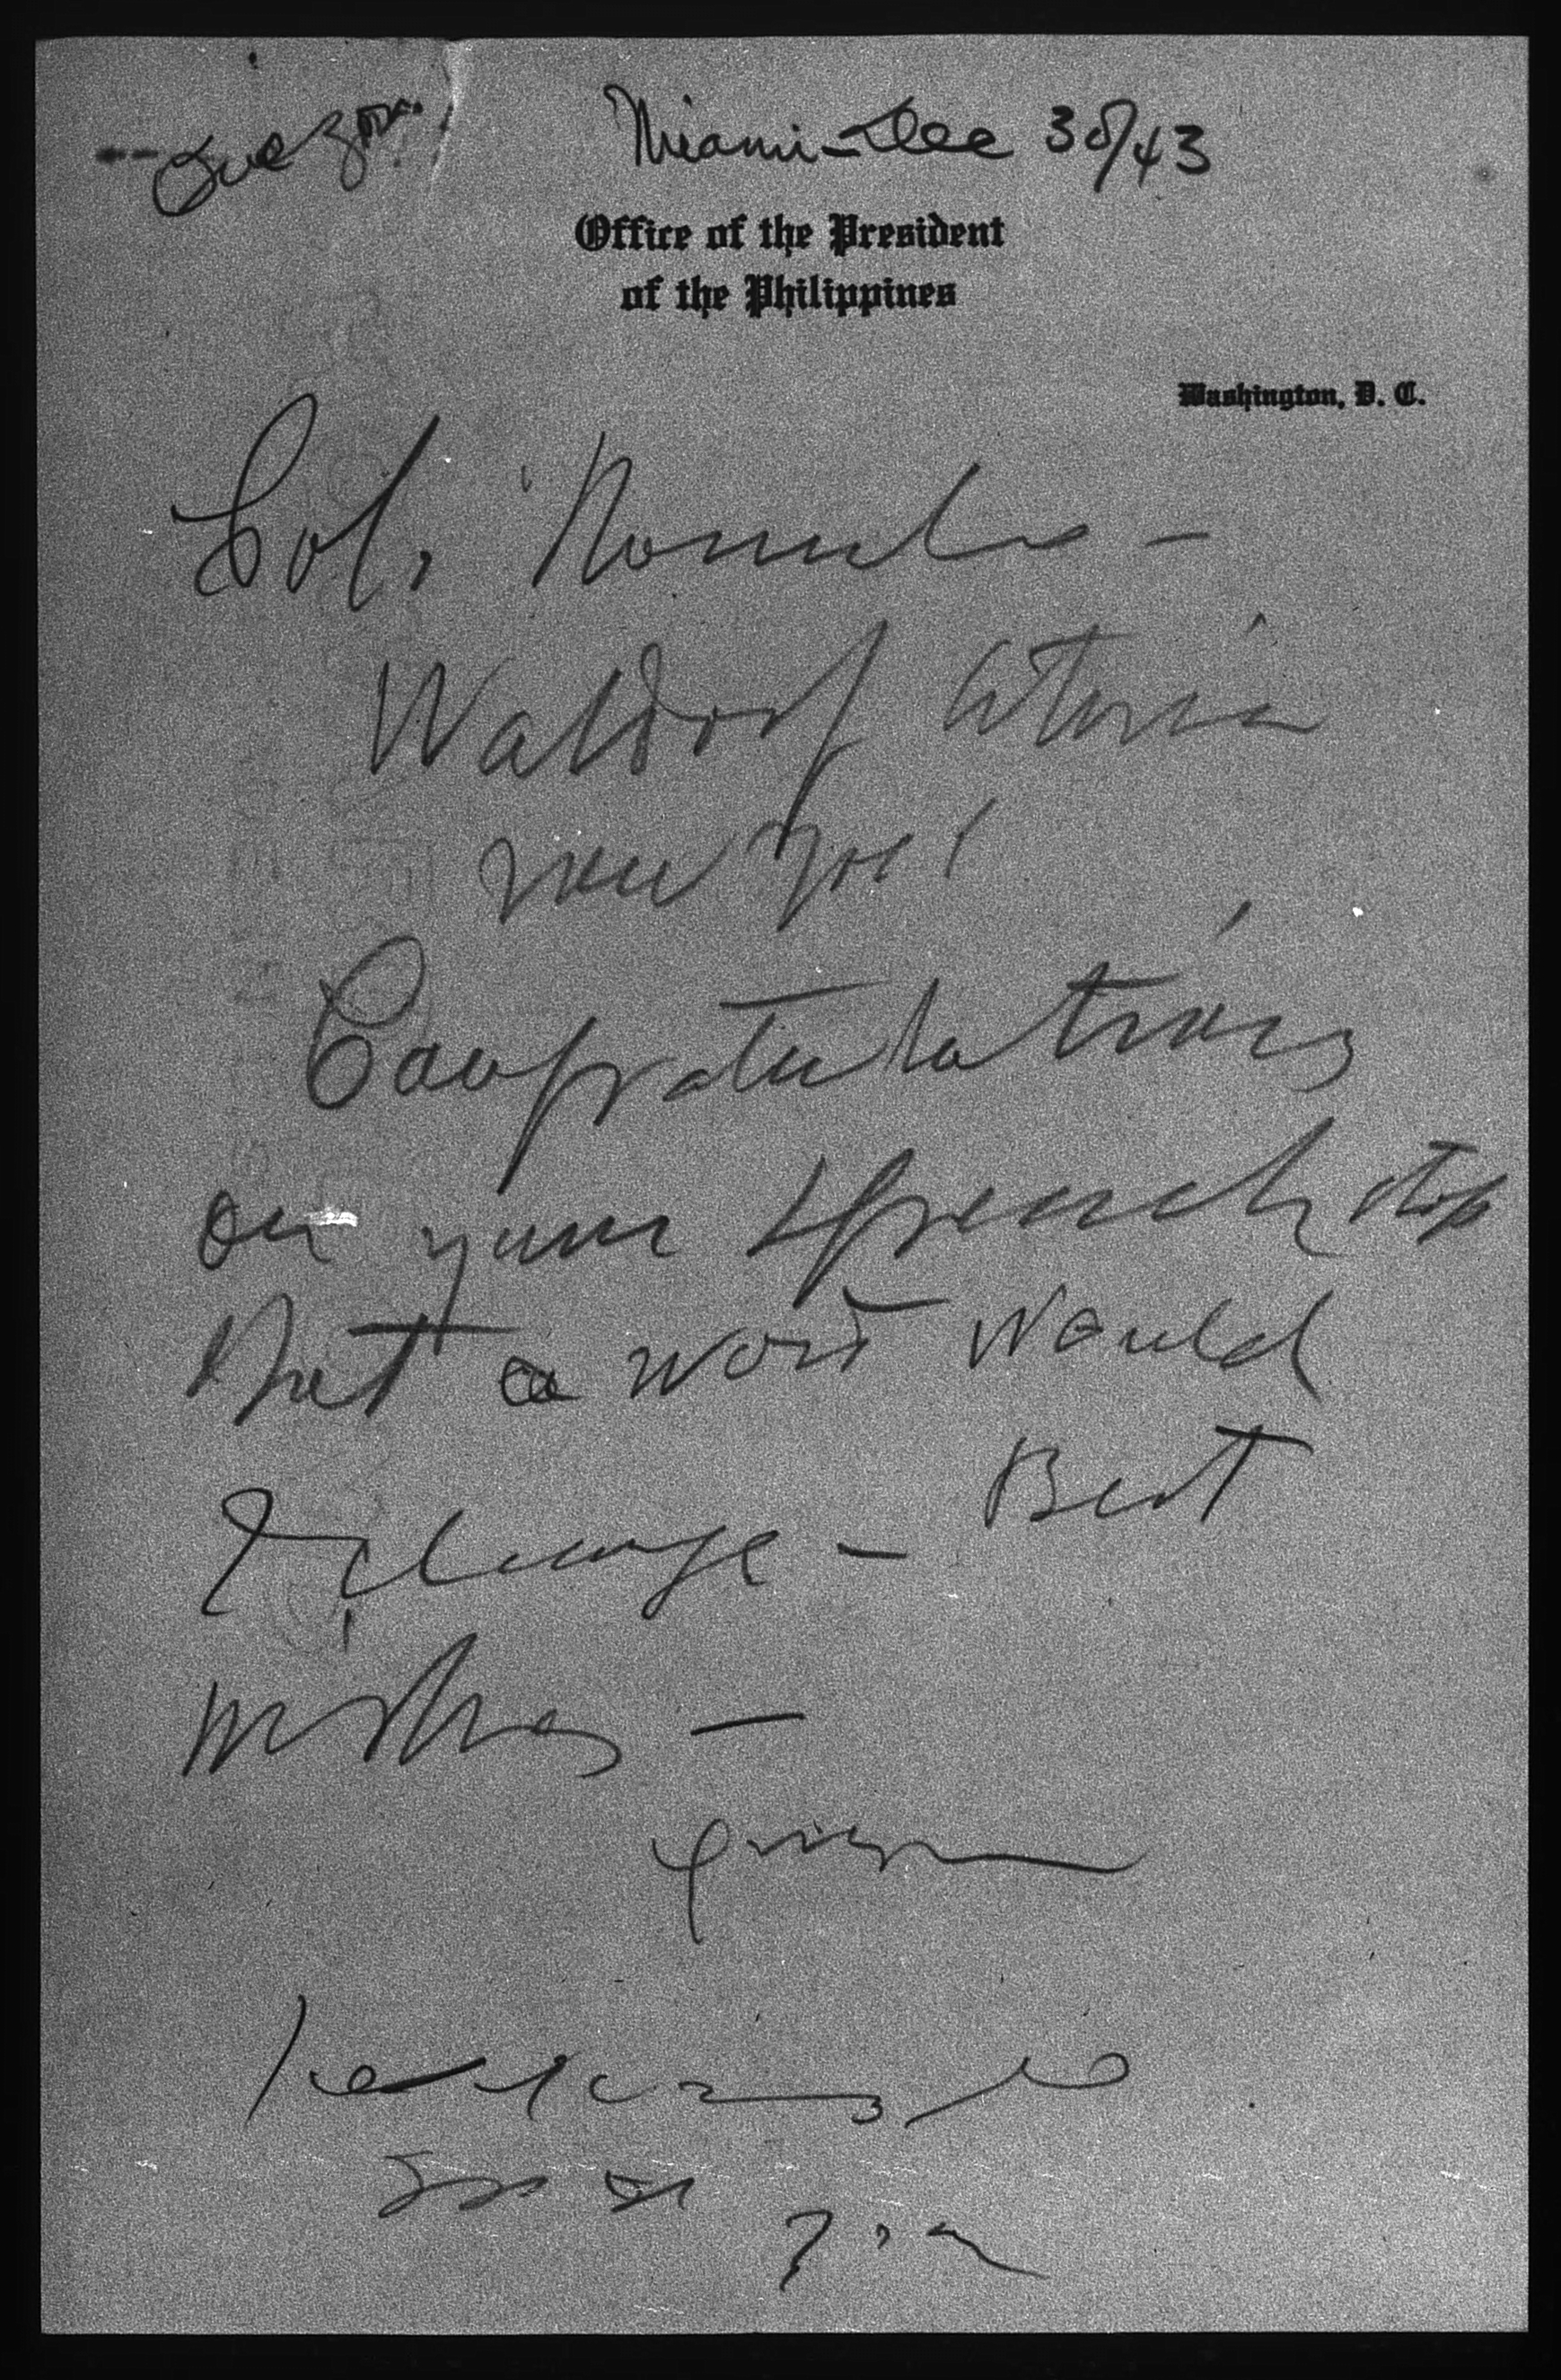 Quezon
Miami - Dec 30/43
Office of the President
of the Philippines
Washington, D. C.
Col. Romulo -
Waldorf Astoria
New York
Congratulations
on your speech stop
Not a word would
I change - Best
wishes -
Quezon